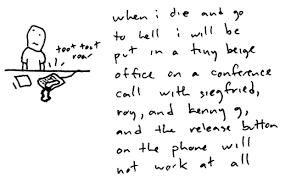 toot toot
roar
when i die and go
to hell i will be
put in a tiny beige
office on a conference
call with siegfried,
roy, and kenny g,
and the release button
on the phone will
not work at all